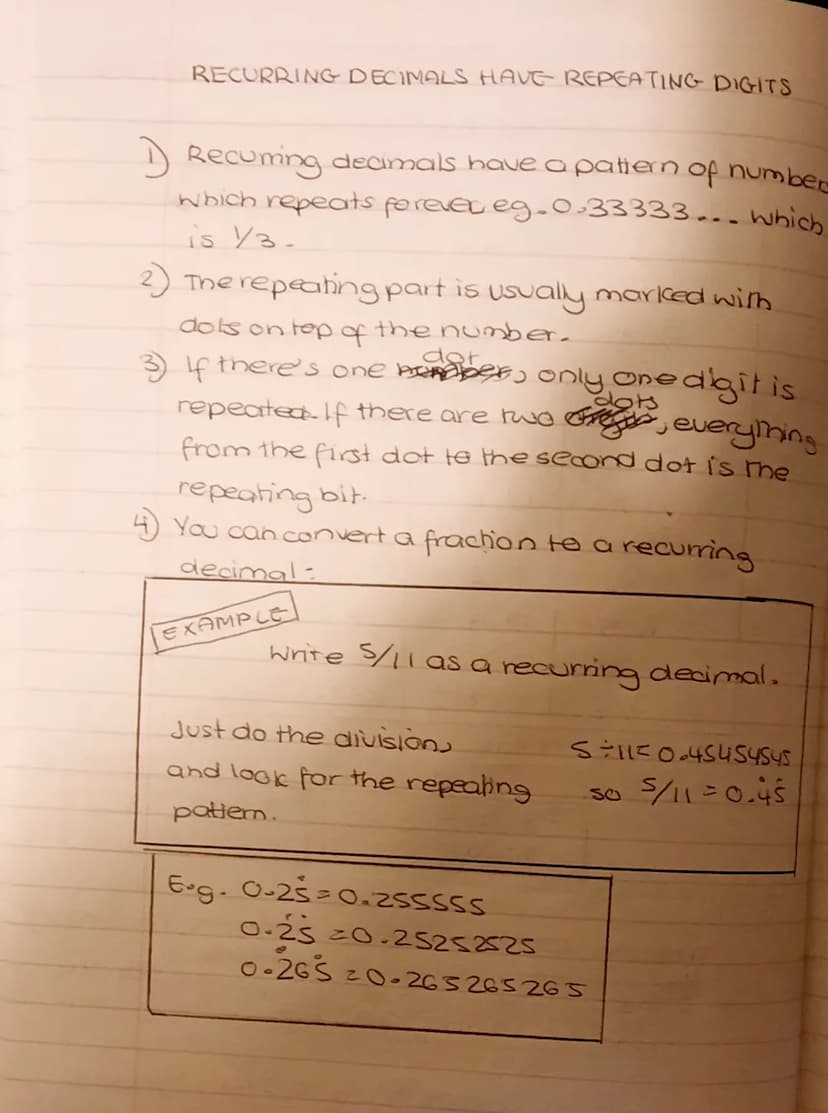 RECURRING DECIMALS HAVE REPEATING DIGITS
1) Recurring decimals have a pattern of number
which repeats forever eg. 0.33333... which
is 1/3.
2) The repeating part is usually marked with
dots on top of the number.
3) If there's one dot, only one digit is
repeated. If there are two dots, everything
from the first dot to the second dot is the
repeating bit.
4) You can convert a fraction to a recurring
decimal:
EXAMPLE
Write 5/11 as a recurring decimal.
Just do the division, 5÷11= 0.45454545
and look for the repeating so 5/11 = 0.4̇5̇
pattern.
E.g. 0.25̇ = 0.255555
0.2̇5̇ = 0.25252525
0.2̇65̇ = 0.265265265